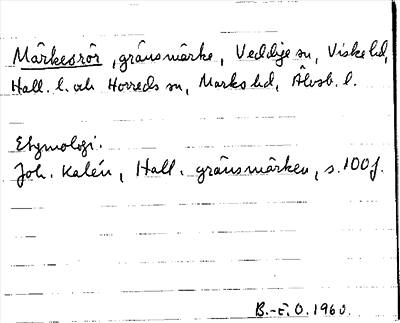 Märkesrör, gränsmärke, Veddige sn, Viske hd,
Hall. l. och Horreds sn, Marks hd, Älvsb. l.
Etymologi.
Joh. Kalén, Hall. gränsmärken, s. 100 f.
B.-E. O. 1960.